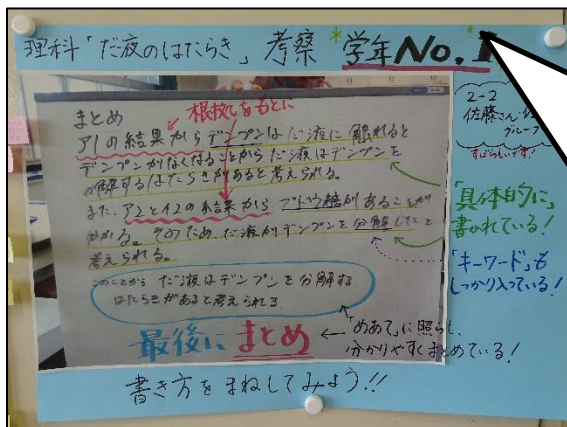 理科「だ液のはたらき」考察 *学年No.1*
2-2
佐藤さん
グループ
すばらしいです!
根拠をもとに
まとめ
ア1の結果からデンプンはだ液に触れると
デンプンがなくなることからだ液はデンプンを
分解するはたらきがあると考えられる。
また、ア2とイ2の結果からブドウ糖があることが
分かる。そのため、だ液がデンプンを分解したと
考えられる。
このことから だ液はデンプンを分解する
はたらきがあると考えられる
「具体的に」
書かれている!
「キーワード」も
しっかり入っている!
最後にまとめ
←「めあて」に照らし、
分かりやすくまとめている!
書き方をまねしてみよう!!